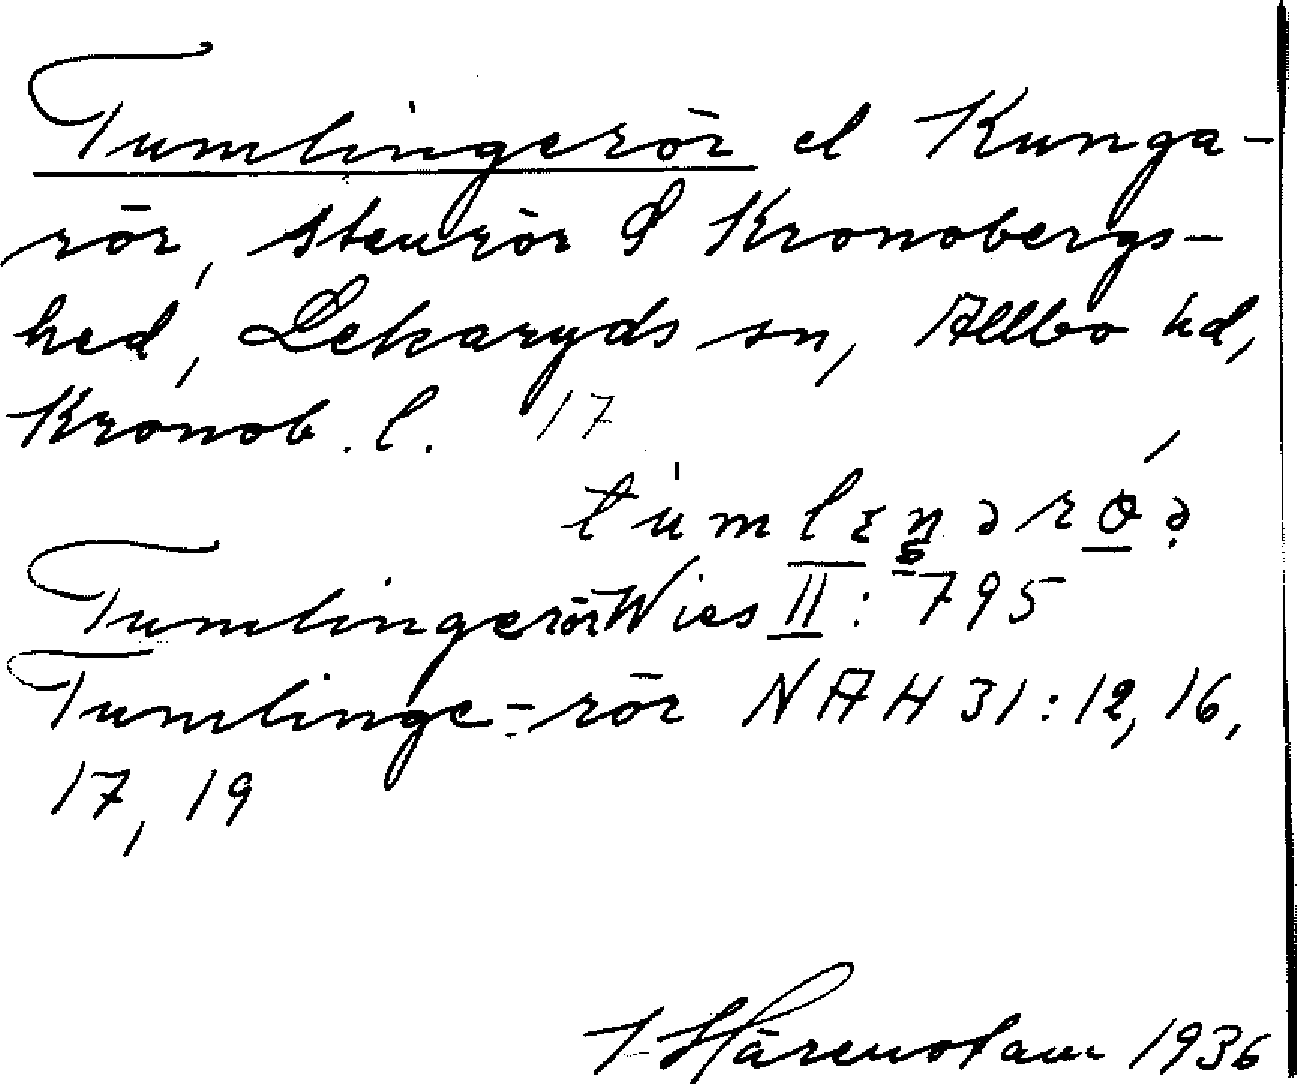 Tumlingerör el Kunga-
rör, stenrör S Kronobergs-
hed, Lekaryds sn, Allbo hd,
Kronob. l. 17
Tumlingerör Wies II: 795
Tumlinge-rör NAH 31: 12, 16,
17, 19
1936